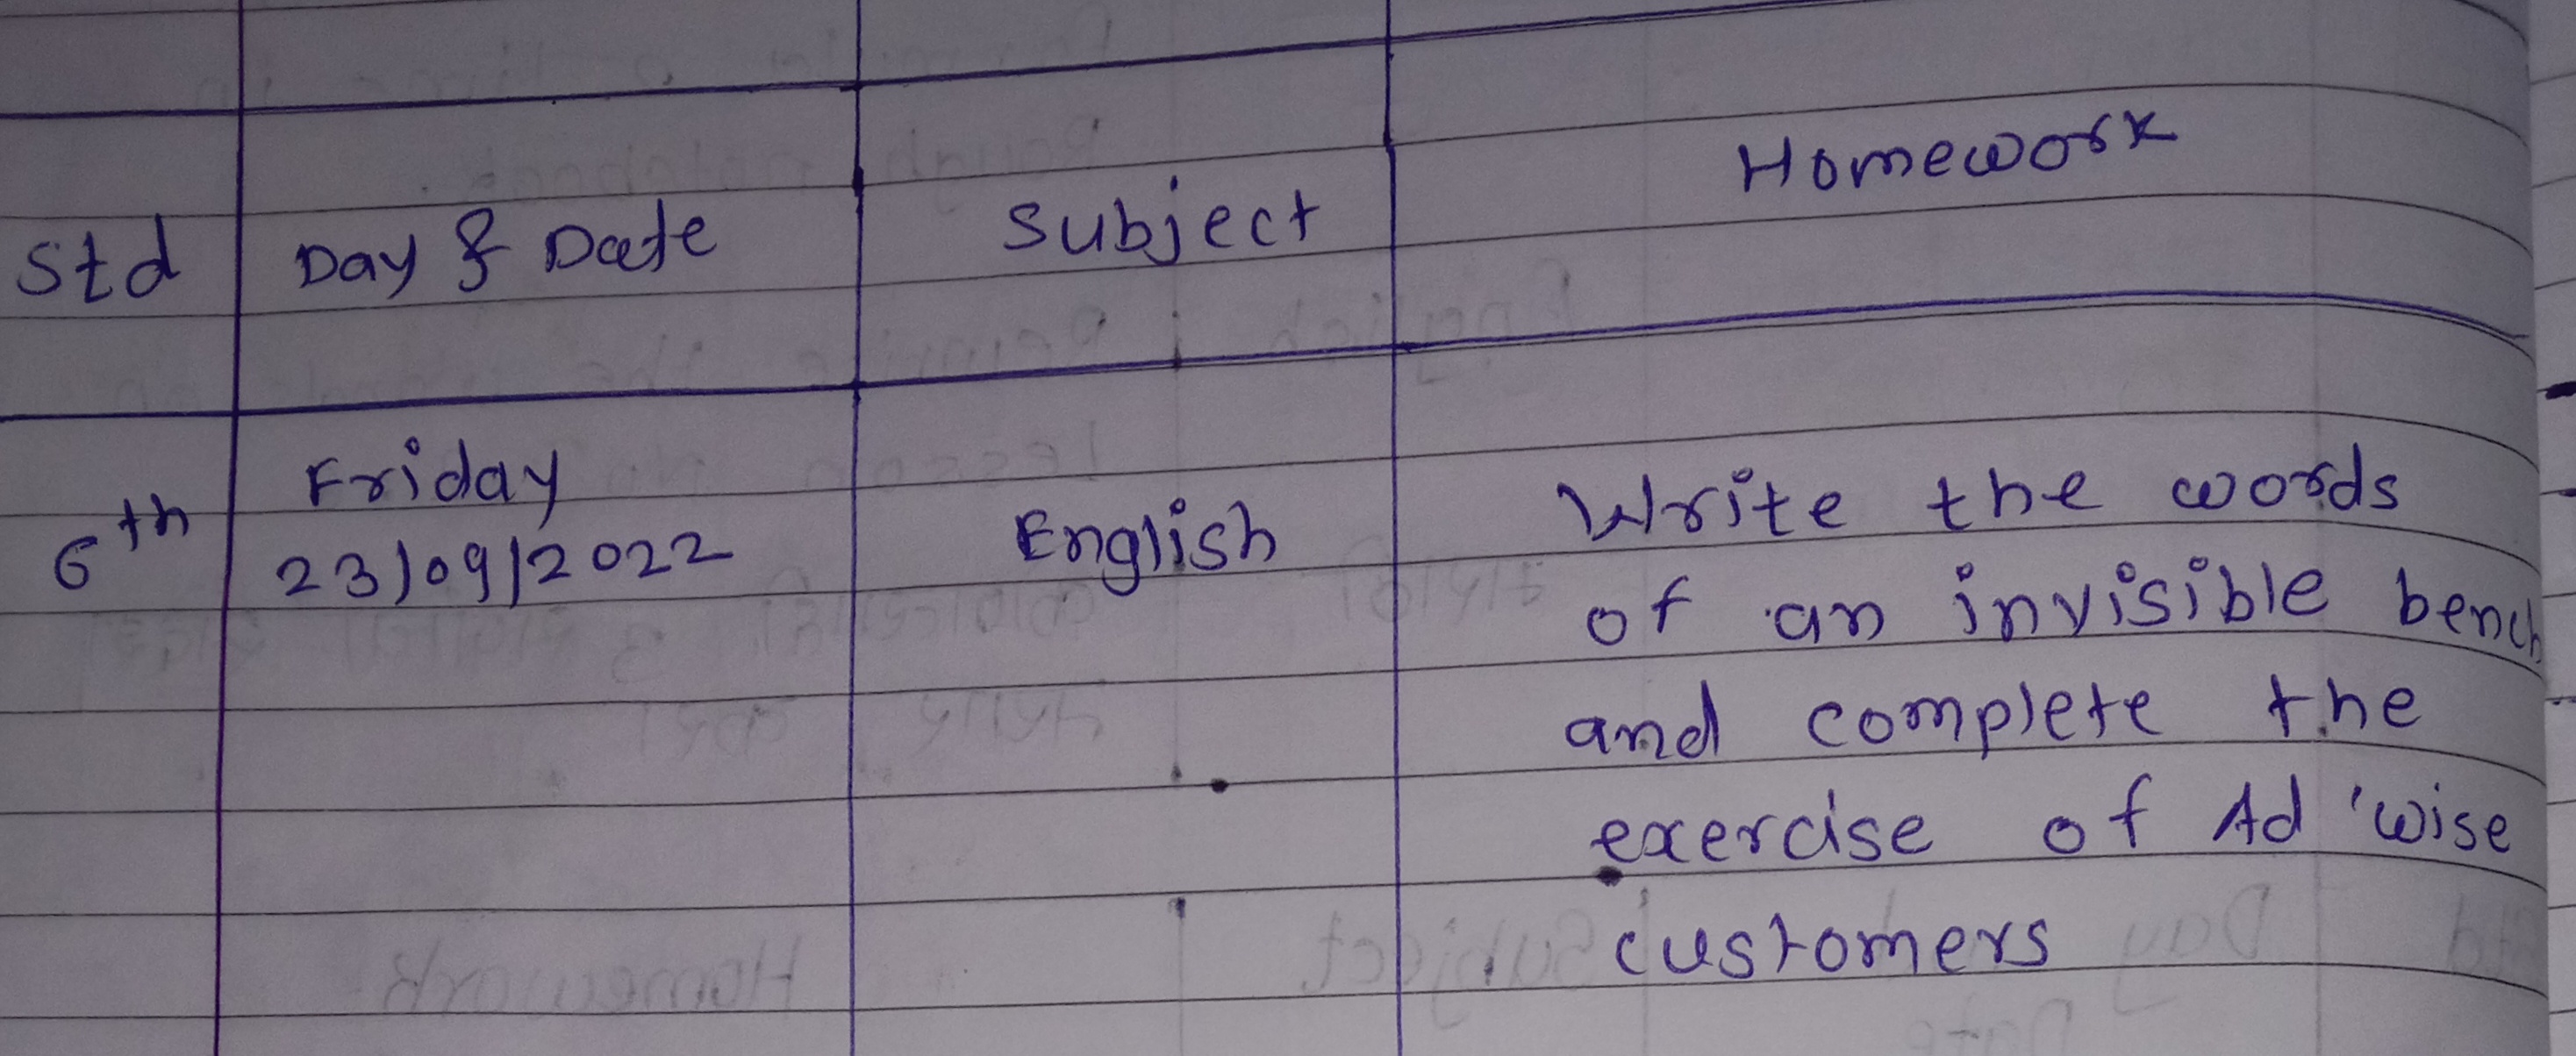 Std Day & Date Subject Homework
6th Friday English Write the words
23/09/2022 of an invisible bench
and complete the
exercise of Ad 'wise
customers